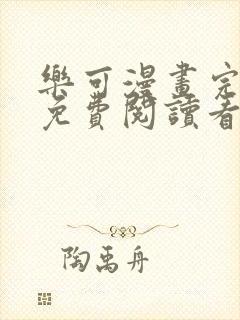 樂可漫畫完
免費閱讀看
陶禹舟